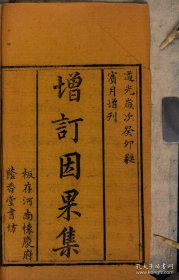 道光歲次癸卯蕤
賓月增刊
增訂因果集
板存河南懷慶府
蔭香堂書坊